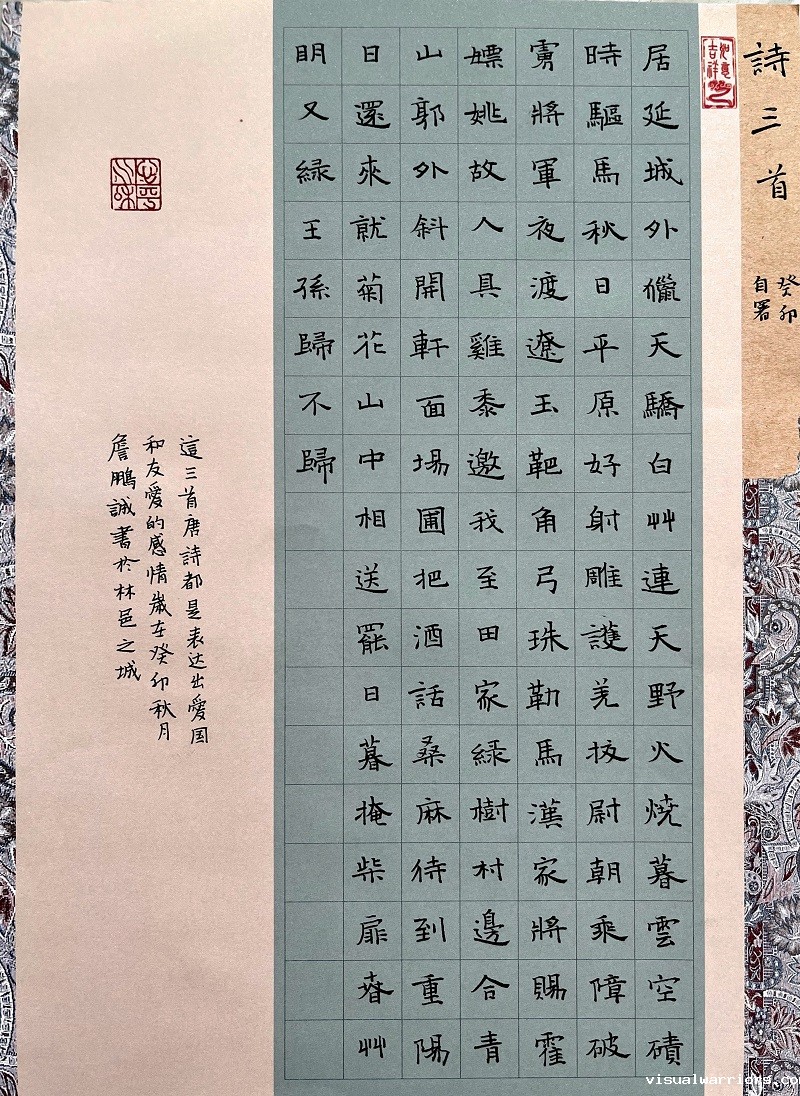 詩三首
癸卯
自署
如意吉祥
居延城外獵天驕白艸連天野火燒暮雲空磧
時驅馬秋日平原好射雕護羌校尉朝乘障破
虜將軍夜渡遼玉靶角弓珠勒馬漢家將賜霍
嫖姚故人具雞黍邀我至田家綠樹村邊合青
山郭外斜開軒面場圃把酒話桑麻待到重陽
日還來就菊花山中相送罷日暮掩柴扉春艸
眀又綠王孫歸不歸
這三首唐詩都是表达出愛国
和友愛的感情歲在癸卯秋月
詹鵬誠書於林邑之城
visualwarriors.co